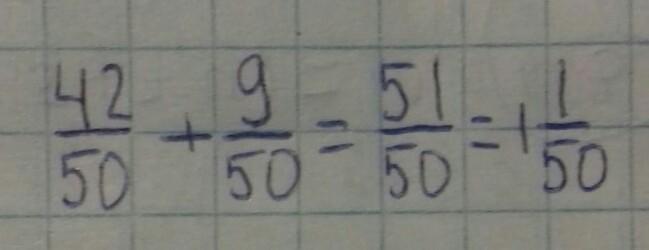 42/50 + 9/50 = 51/50 = 1 1/50